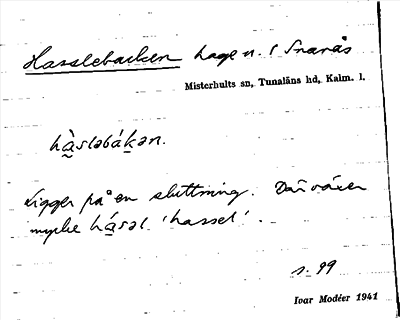 Hasslebacken hage n. i Snarås
Misterhults sn, Tunaläns hd, Kalm. l.
hàsləbákən.
Ligger på en sluttning. Där växer
mycke hásəl 'hassel'.
s. 99
Ivar Modéer 1941